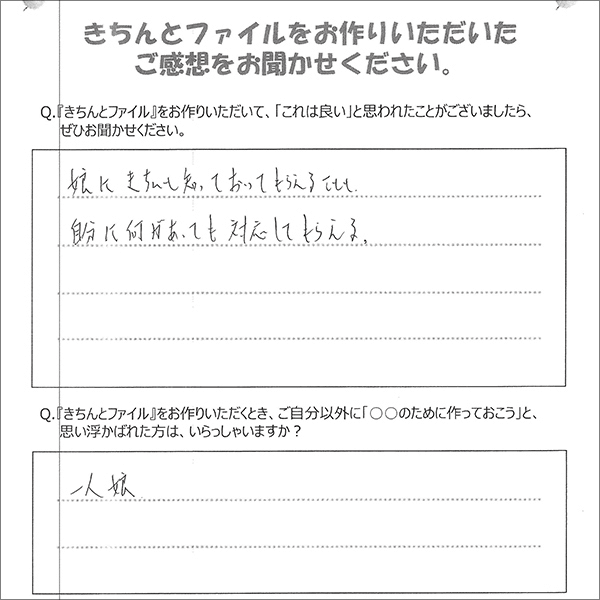 きちんとファイルをお作りいただいた
ご感想をお聞かせください。
Q.『きちんとファイル』をお作りいただいて、「これは良い」と思われたことがございましたら、
ぜひお聞かせください。
娘にきちんと知っておってもらえることと、
自分に何があっても対応してもらえる。
Q.『きちんとファイル』をお作りいただくとき、ご自分以外に「○○のために作っておこう」と、
思い浮かばれた方は、いらっしゃいますか？
一人娘